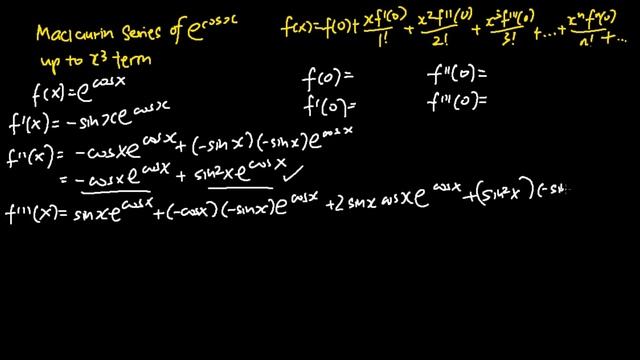 Maclaurin Series of e^cosx
up to x³ term
f(x)=f(0)+xf'(0)/1!+x²f''(0)/2!+x³f'''(0)/3!+...+xⁿfⁿ(0)/n!+...
f(x)=e^cosx
f(0)= f''(0)=
f'(0)= f'''(0)=
f'(x)=-sinxe^cosx
f''(x)=-cosxe^cosx+(-sinx)(-sinx)e^cosx
=-cosxe^cosx+sin²xe^cosx✓
f'''(x)=sinxe^cosx+(-cosx)(-sinx)e^cosx+2sinxcosxe^cosx+(sin²x)(-sin